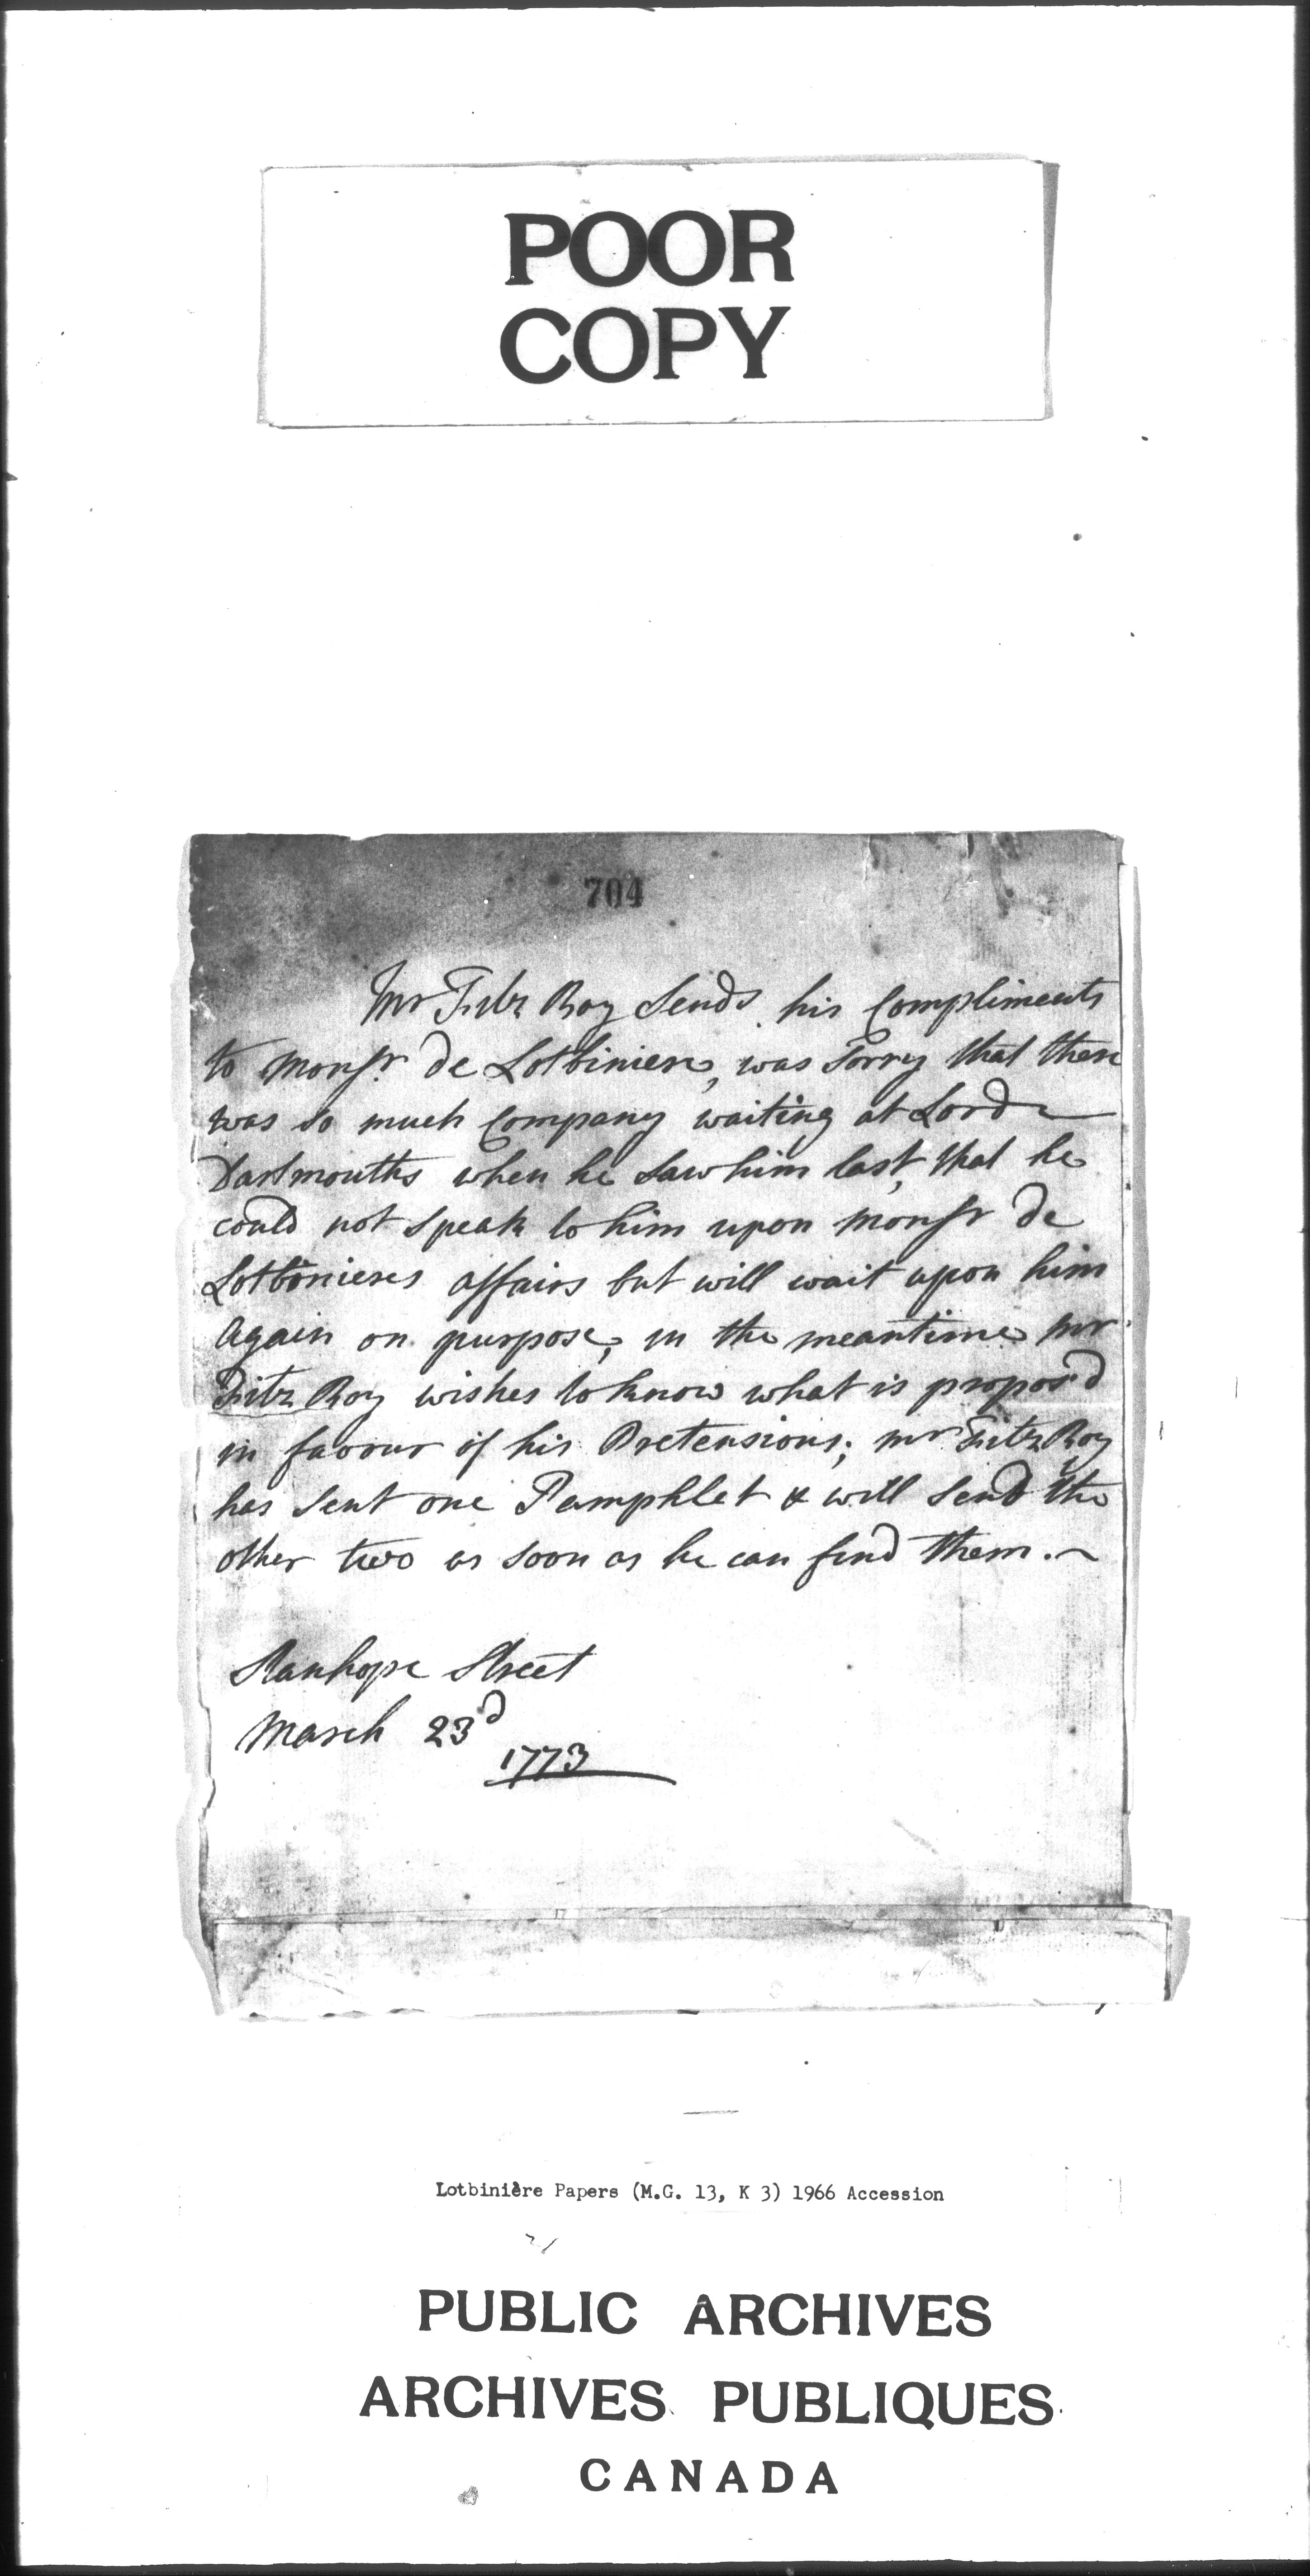 POOR
COPY
704
Mr Fitz Roy Sends his Compliments
to Monsr. de Lotbiniere, was Sorry that there
was so much Company waiting at Lord
Dartmouths when he Saw him last, that he
could not speak to him upon Monsr de
Lotbinieres affairs but will wait upon him
again on purpose, in the meantime Mr
Fitz Roy wishes to know what is propos'd
in favour of his Pretensions; Mr Fitz Roy
has sent one Pamphlet & will Send the
other two as soon as he can find them.
Stanhope Street
March 23d
1773
Lotbinière Papers (M.G. 13, K 3) 1966 Accession
PUBLIC ARCHIVES
ARCHIVES PUBLIQUES
CANADA